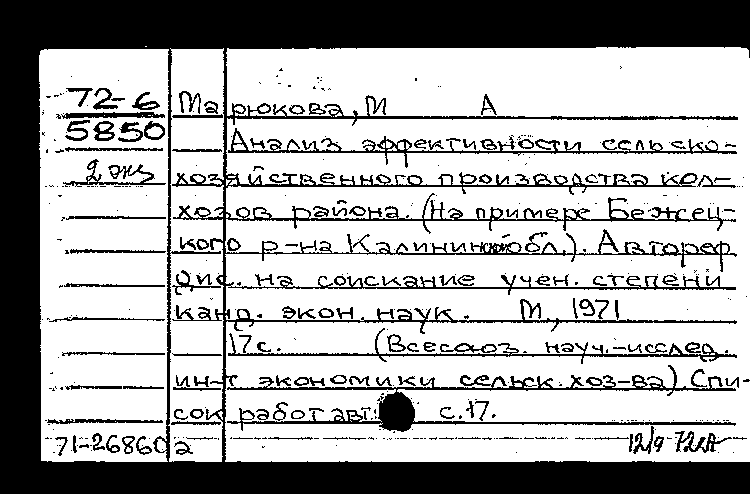 72-6 Марюкова, М А
5850 Анализ эффективности сельско-
2 экз хозяйственного производства кол-
хозов района. (На примере Бежец-
кого р-на Калининской обл.). Автореф
дис. на соискание учен. степени
канд. экон. наук. М., 1971
17с. (Всесоюз. науч.-исслед.
ин-т экономики сельск. хоз-ва) Спи-
сок работ авт. с.17.
71-26860а 12/9